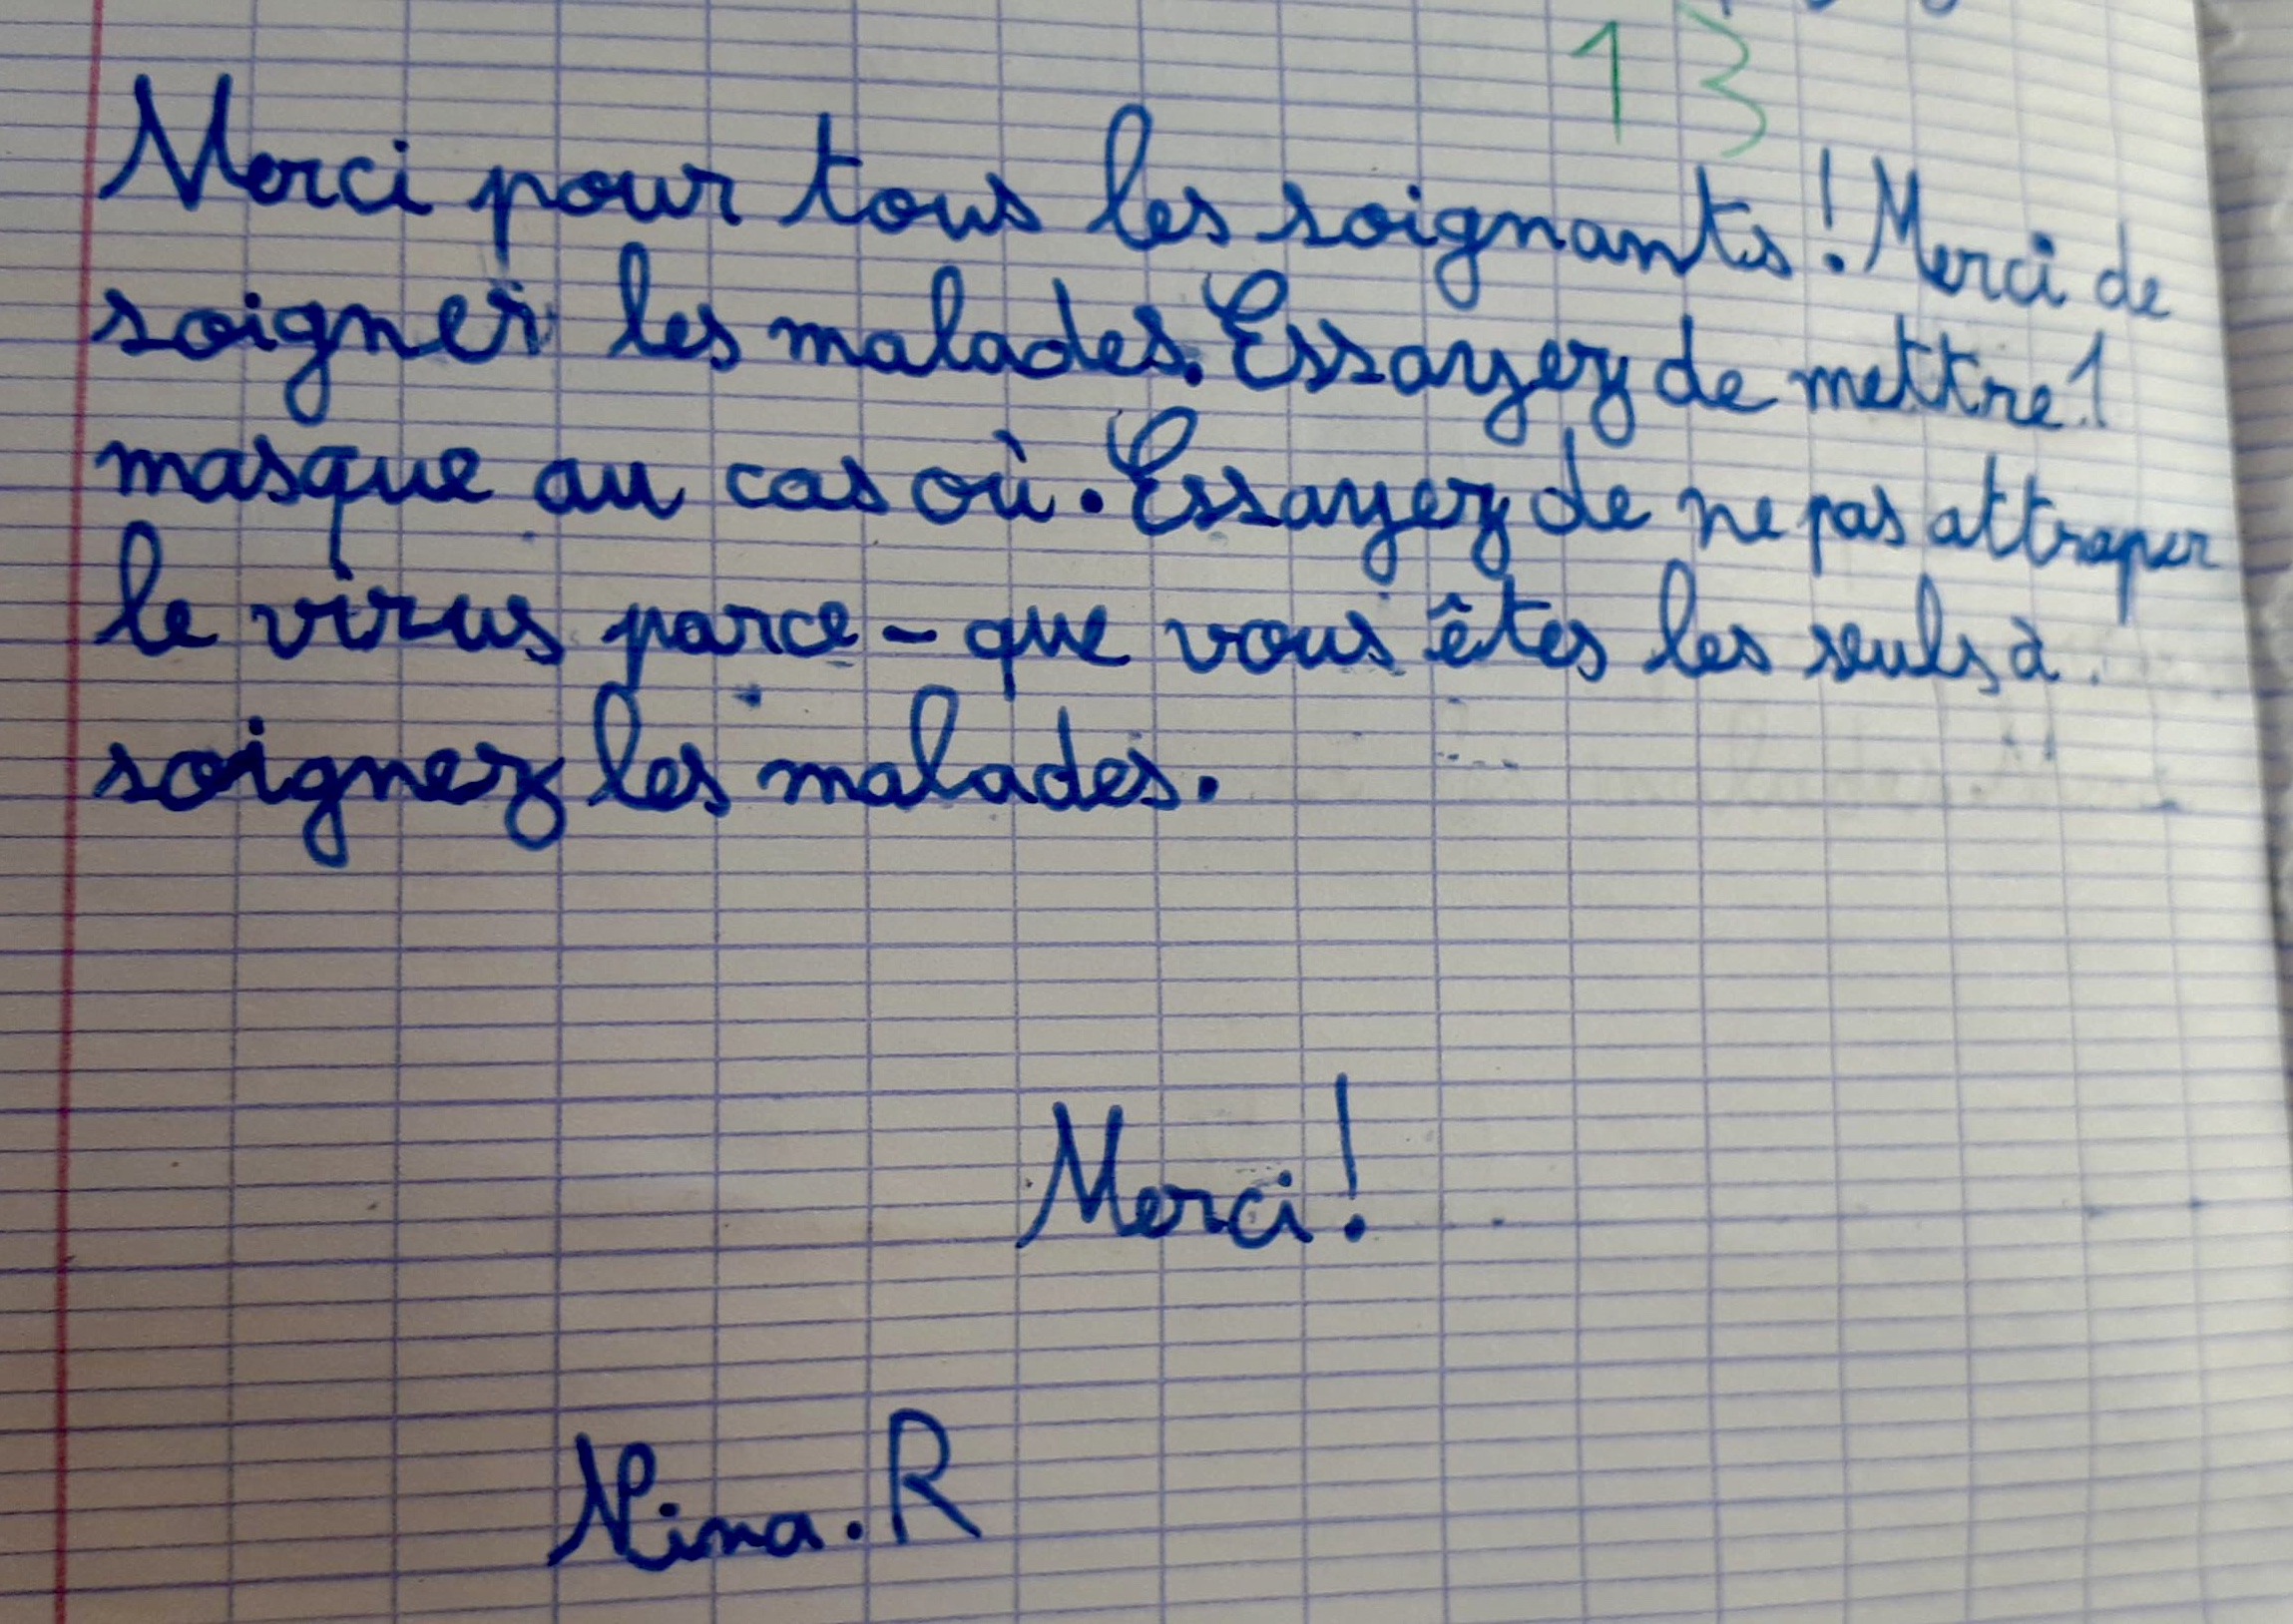 13
Merci pour tous les soignants ! Merci de
soigner les malades. Essayez de mettre 1
masque au cas où. Essayez de ne pas attraper
le virus parce-que vous êtes les seuls à
soignez les malades.
Merci !
Nina. R